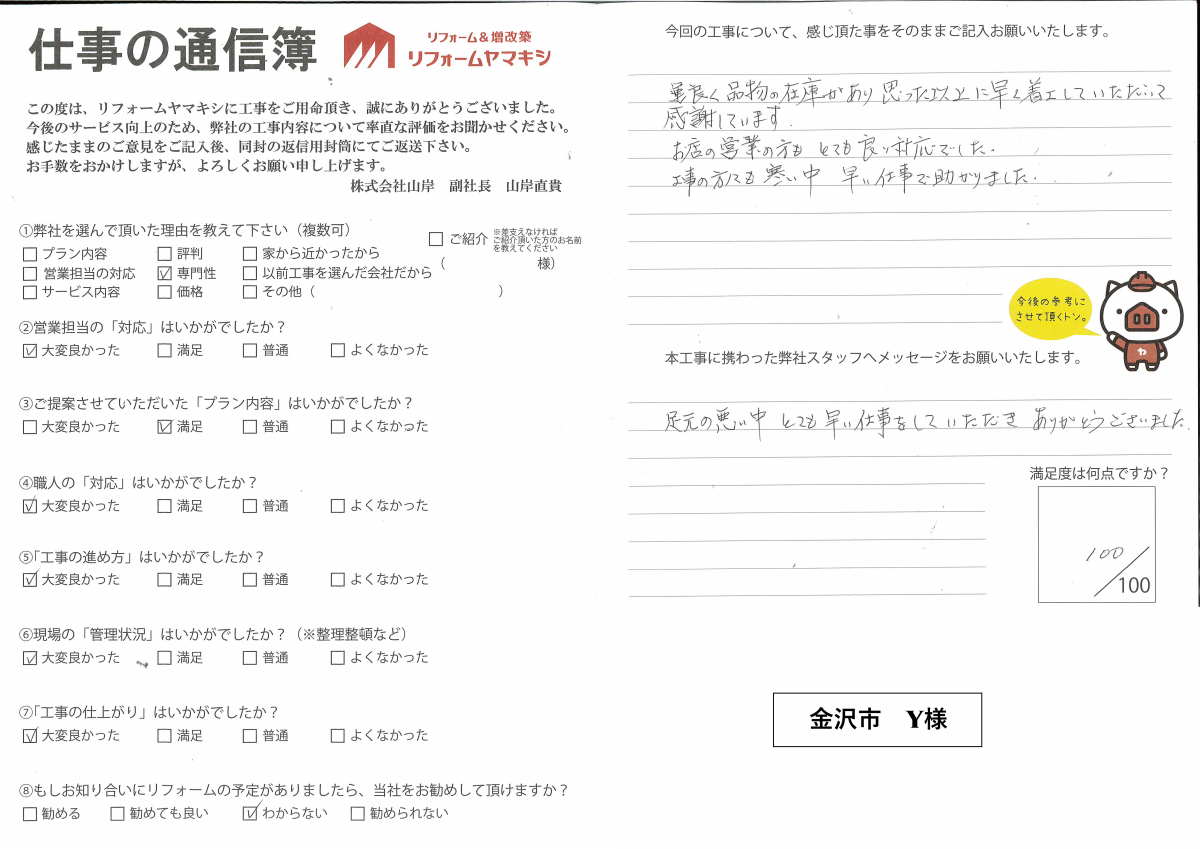 仕事の通信簿
リフォーム＆増改築
リフォームヤマキシ
この度は、リフォームヤマキシに工事をご用命頂き、誠にありがとうございました。
今後のサービス向上のため、弊社の工事内容について率直な評価をお聞かせください。
感じたままのご意見をご記入後、同封の返信用封筒にてご返送下さい。
お手数をおかけしますが、よろしくお願い申し上げます。
株式会社山岸　副社長　山岸直貴
①弊社を選んで頂いた理由を教えて下さい（複数可）
□ プラン内容　□ 評判　□ 家から近かったから　□ ご紹介 ※差支えなければ
ご紹介頂いた方のお名前
を教えてください
□ 営業担当の対応　☑ 専門性　□ 以前工事を選んだ会社だから（　　　様）
□ サービス内容　□ 価格　□ その他（　　　）
②営業担当の「対応」はいかがでしたか？
☑ 大変良かった　□ 満足　□ 普通　□ よくなかった
③ご提案させていただいた「プラン内容」はいかがでしたか？
□ 大変良かった　☑ 満足　□ 普通　□ よくなかった
④職人の「対応」はいかがでしたか？
☑ 大変良かった　□ 満足　□ 普通　□ よくなかった
⑤「工事の進め方」はいかがでしたか？
☑ 大変良かった　□ 満足　□ 普通　□ よくなかった
⑥現場の「管理状況」はいかがでしたか？（※整理整頓など）
☑ 大変良かった　□ 満足　□ 普通　□ よくなかった
⑦「工事の仕上がり」はいかがでしたか？
☑ 大変良かった　□ 満足　□ 普通　□ よくなかった
⑧もしお知り合いにリフォームの予定がありましたら、当社をお勧めして頂けますか？
□ 勧める　□ 勧めても良い　☑ わからない　□ 勧められない
今回の工事について、感じ頂た事をそのままご記入お願いいたします。
運良く品物の在庫があり思った以上に早く着工していただいて
感謝しています.
お店の営業の方も とても良い対応でした.
工事の方にも寒い中 早い仕事で助かりました.
今後の参考に
させて頂くトン。
ヤ
本工事に携わった弊社スタッフへメッセージをお願いいたします。
足元の悪い中 とても早い仕事をしていただき ありがとうございました.
満足度は何点ですか？
100／100
金沢市　Y様